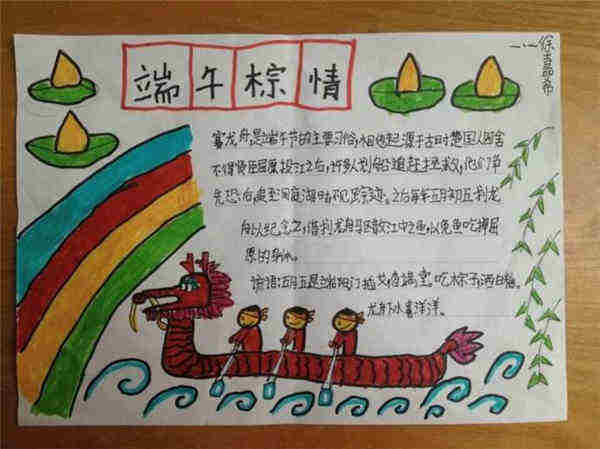 端午棕情
赛龙舟,是端午节的主要习俗,相传起源于古时楚国人因舍
不得贤臣屈原投江之后,许多人划船追赶拯救,他们争
先恐后,追至洞庭湖时不见踪迹。之后每年五月初五划龙
舟以纪念之,借划龙舟驱散江中之鱼,以免鱼吃掉屈
原的身体。
谚语:五月五是端阳门插艾,香满堂。吃粽子,洒白糖。
龙舟下水喜洋洋。